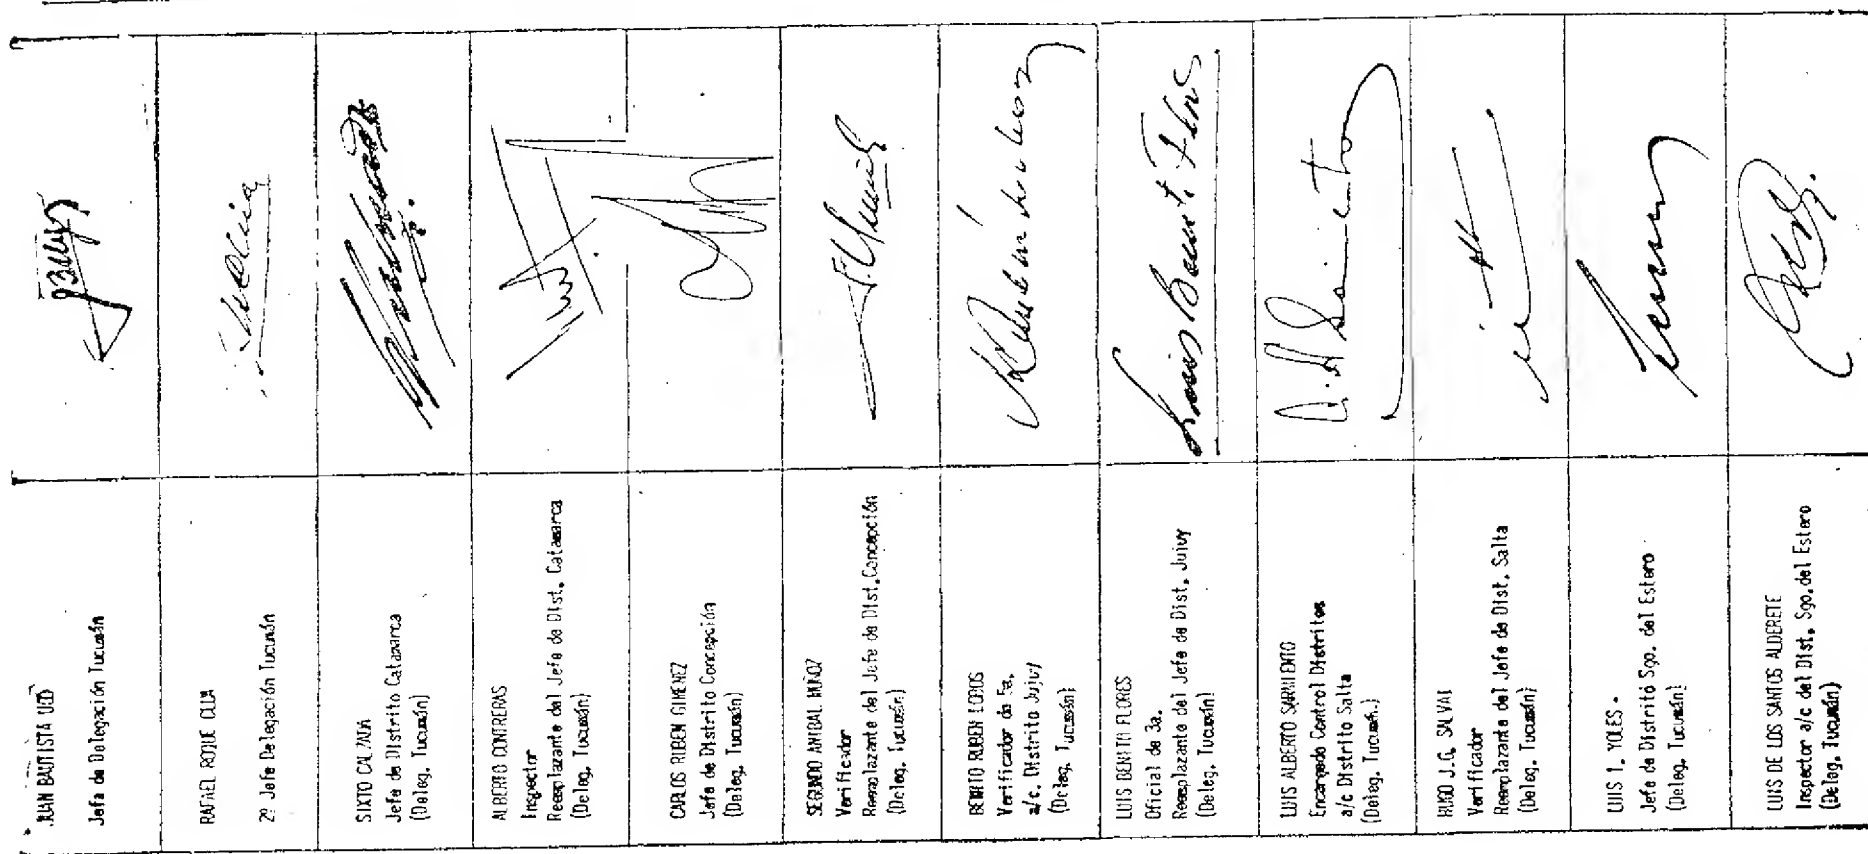 JUAN BAUTISTA
Jefe de Delegación Tucumán
RAFAEL ROQUE
2º Jefe Delegación Tucumán
SIXTO CALZADA
Jefe de Distrito Catamarca
(Deleg. Tucumán)
ALBERTO CONTRERAS
Inspector
Reemplazante del Jefe de Dist. Catamarca
(Deleg. Tucumán)
CARLOS RUBEN GIMENEZ
Jefe de Distrito Concepción
(Deleg. Tucumán)
SEGUNDO ANIBAL MUÑOZ
Verificador
Reemplazante del Jefe de Dist.Concepción
(Deleg. Tucumán)
BENITO RUBEN
Verificador de
a/c. Distrito Jujuy
(Deleg. Tucumán)
LUIS BENITO FLORES
Oficial de 3a.
Reemplazante del Jefe de Dist. Jujuy
(Deleg. Tucumán)
Luis Benit. Flores
LUIS ALBERTO SARMIENTO
Encargado Control Distritos
a/c Distrito Salta
(Deleg. Tucumán.)
HUGO J.G. SALVAT
Verificador
Reemplazante del Jefe de Dist. Salta
(Deleg. Tucumán)
LUIS I. YOLES.
Jefe de Distrito Sgo. del Estero
(Deleg. Tucumán)
LUIS DE LOS SANTOS ALDERETE
Inspector a/c del Dist. Sgo.del Estero
(Deleg. Tucumán)